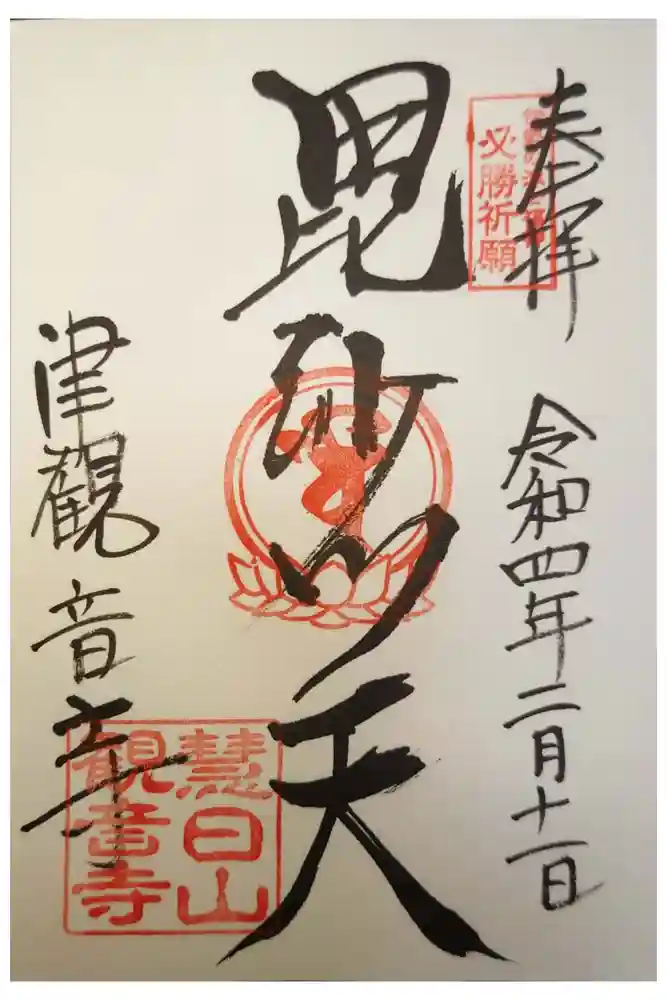 奉拝
必勝祈願
令和四年二月十一日
毘沙門天
津観音寺
慧日山
観音寺